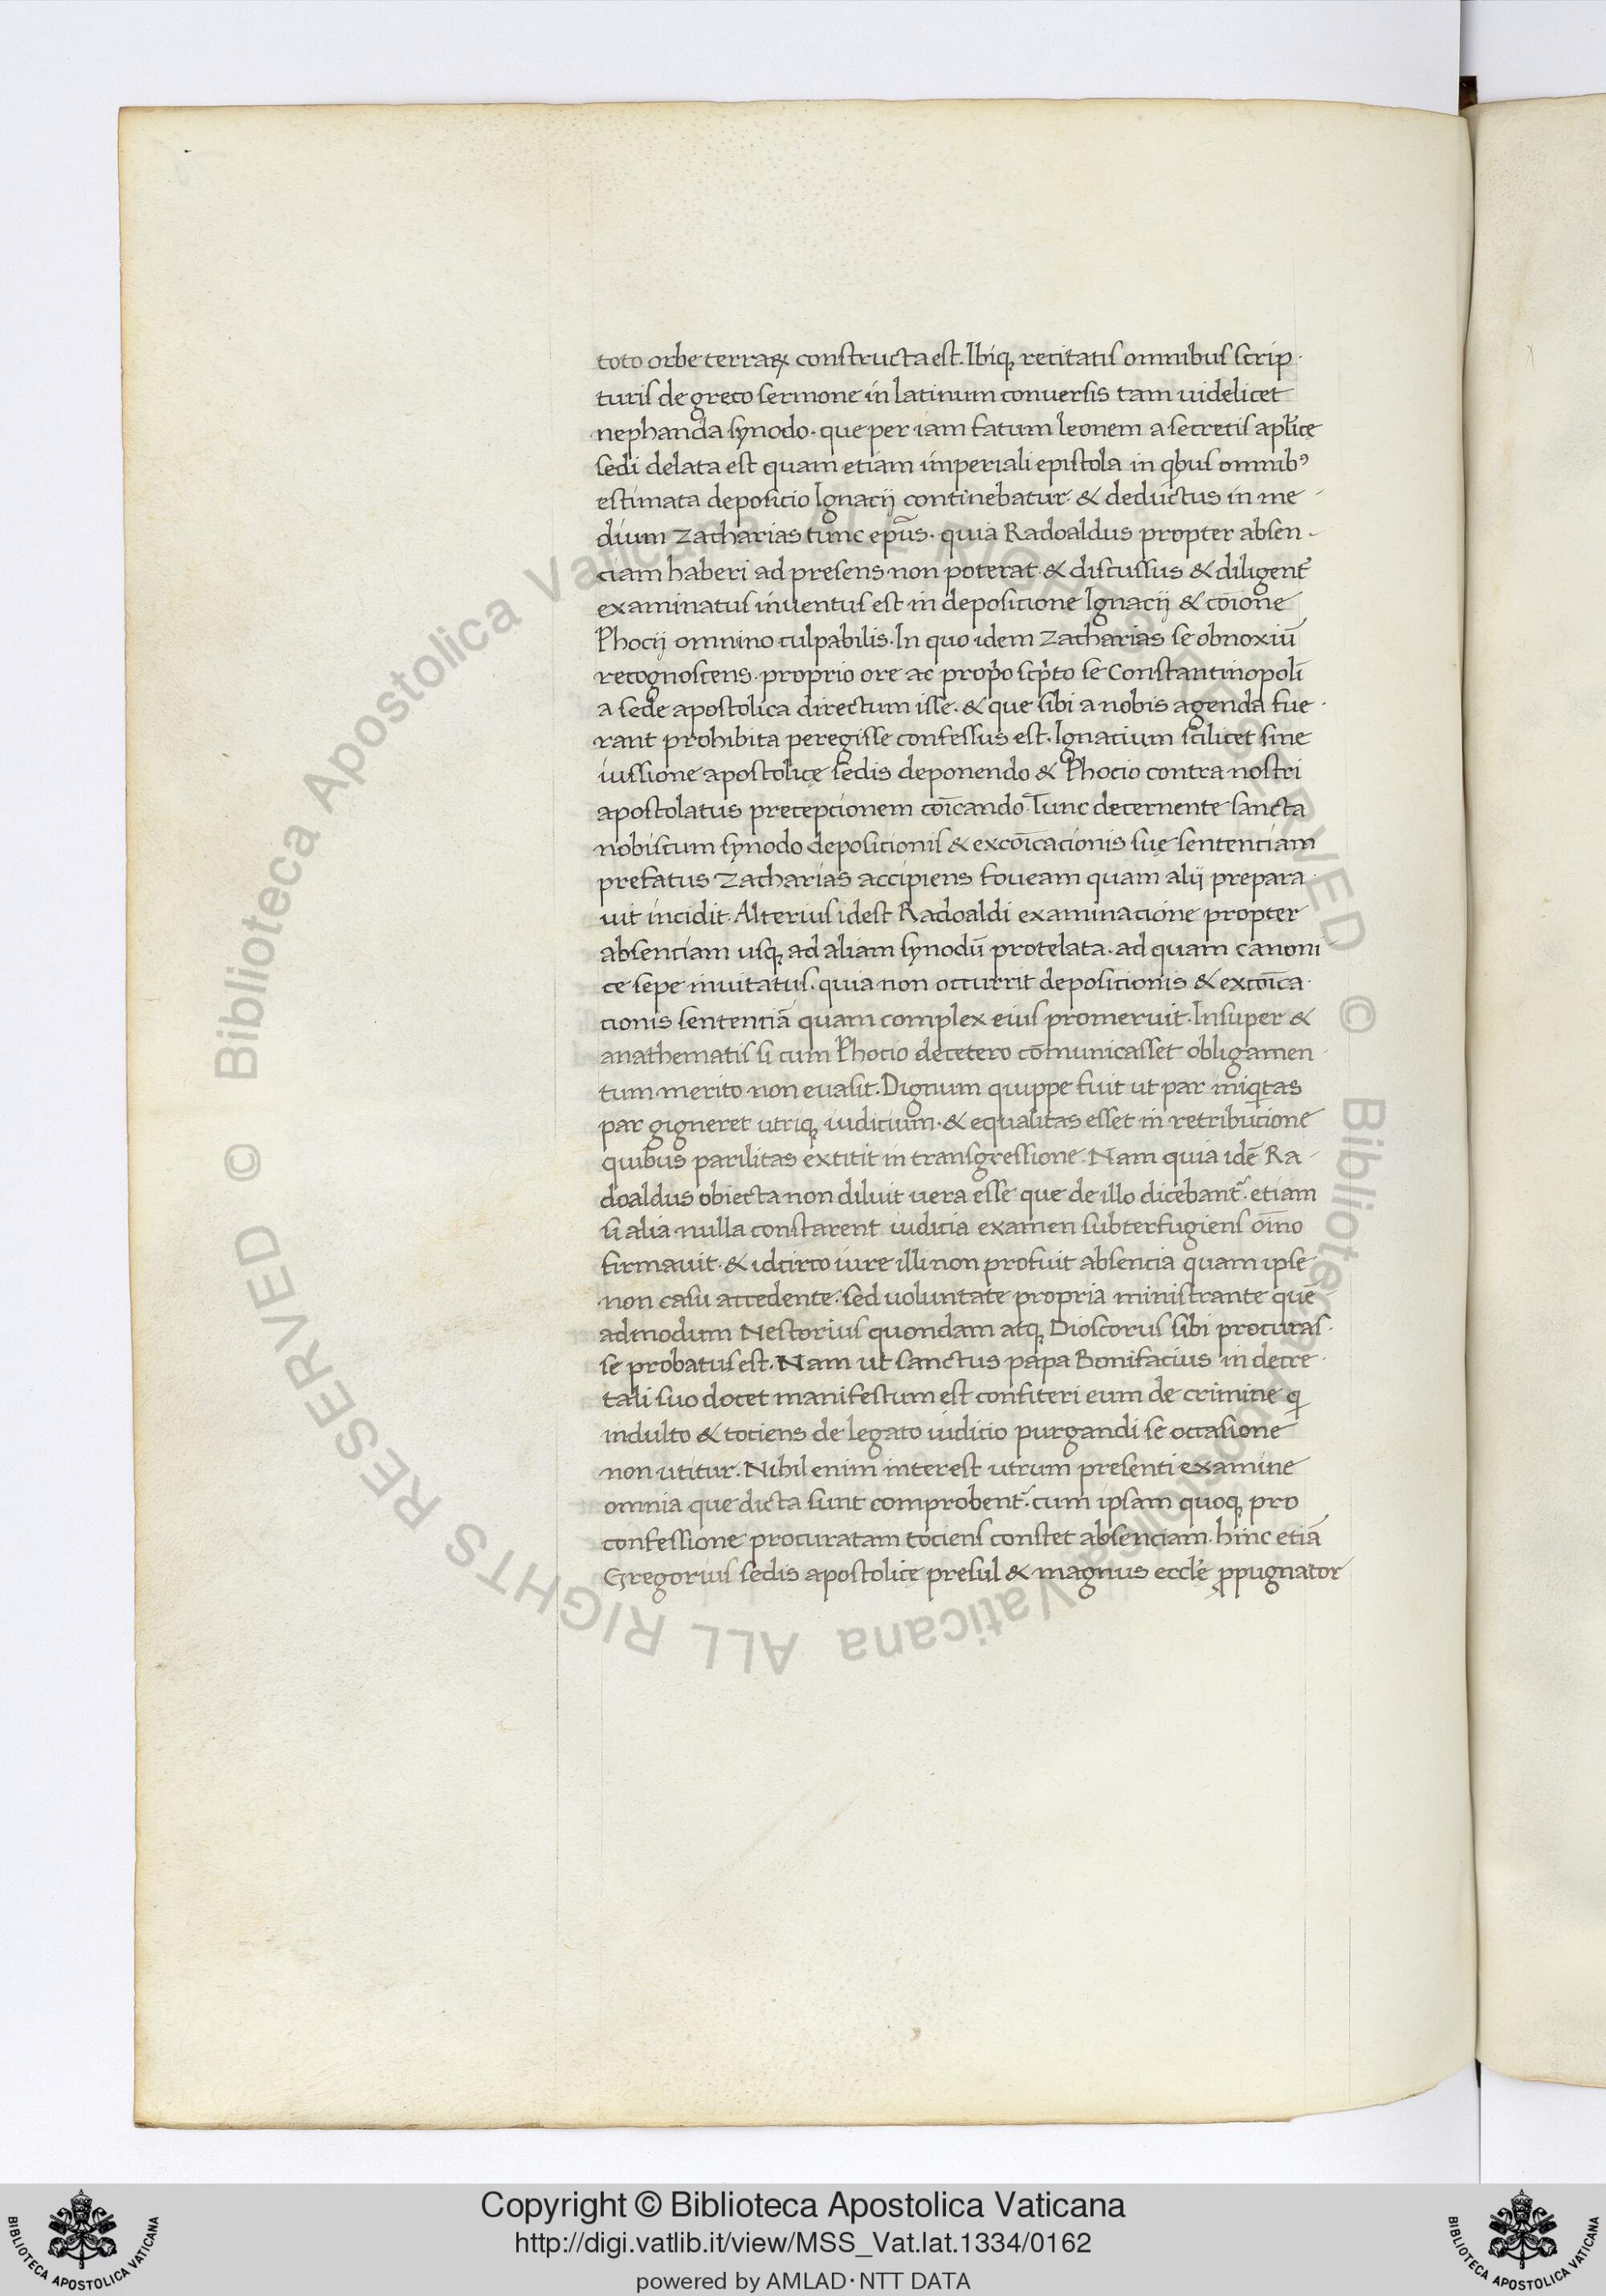 toto orbe terraꝝ constructa est. Ibiqꝫ recitatis omnibus scrip-
turis de greco sermone in latinum conversis tam videlicet
nephanda synodo. que per iam fatum leonem a secretis apl'ice
sedi delata est quam etiam imperiali epistola in qbus omnibꝰ
estimata deposicio Ignacij continebatur. & deductus in me-
dium Zacharias tunc ep̄us. quia Radoaldus propter absen-
ciam haberi ad presens non poterat. & discussus & diligent̓
examinatus inuentus est in deposicione Ignacij & cōione
Phocij omnino culpabilis. In quo idem Zacharias se obnoxiū
recognoscens. proprio ore ac prop̓o sc̓pto se Constantinopolī
a sede apostolica directum isse. & que sibi a nobis agenda fue-
rant prohibita peregisse confessus est. Ignacium scilicet sine
iussione apostolicę sedis deponendo & Phocio contra nostri
apostolatus precepcionem cōicando. Tunc decernente sancta
nobiscum synodo deposicionis & excōicacionis suę sentenciam
prefatus Zacharias accipiens foueam quam alij prepara-
uit incidit. Alterius idest Radoaldi examinacione propter
absenciam usqꝫ ad aliam synodū protelata. ad quam canoni-
ce sepe inuitatus. quia non occurrit deposicionis & excōica-
cionis sentenciā quam complex eius promeruit. Insuper &
anathematis si cum Phocio decetero cōmunicasset obligamen-
tum merito non euasit. Dignum quippe fuit ut par iniqitas
par gigneret utriqꝫ iudicium. & equalitas esset in retribucione
quibus parilitas extitit in transgressione. Nam quia idē Ra-
doaldus obiecta non diluit uera esse que de illo dicebant᷑. etiam
si alia nulla constarent iudicia examen subterfugiens oīno
firmauit. & idcirco iure illi non profuit absencia quam ipse
non casu accedente. sed uoluntate propria ministrante quē
admodum Nestorius quondam atqꝫ Dioscorus sibi procuras-
se probatus est. Nam ut sanctus papa Bonifacius in decre-
tali suo docet manifestum est confiteri eum de crimine qi
indulto & tociens de legato iudicio purgandi se occasione
non utitur. Nihil enim interest utrum presenti examine
omnia que dicta sunt comprobent᷑. cum ipsam quoqꝫ pro
confessione procuratam tociens constet absenciam. hinc etiā
Gregorius sedis apostolicę presul & magnus eccl'e ꝓpugnator
© Biblioteca Apostolica Vaticana ALL RIGHTS RESERVED © Biblioteca Apostolica Vaticana ALL RIGHTS RESERVED
Copyright © Biblioteca Apostolica Vaticana
http://digi.vatlib.it/view/MSS_Vat.lat.1334/0162
powered by AMLAD·NTT DATA
BIBLIOTECA APOSTOLICA VATICANA
BIBLIOTECA APOSTOLICA VATICANA